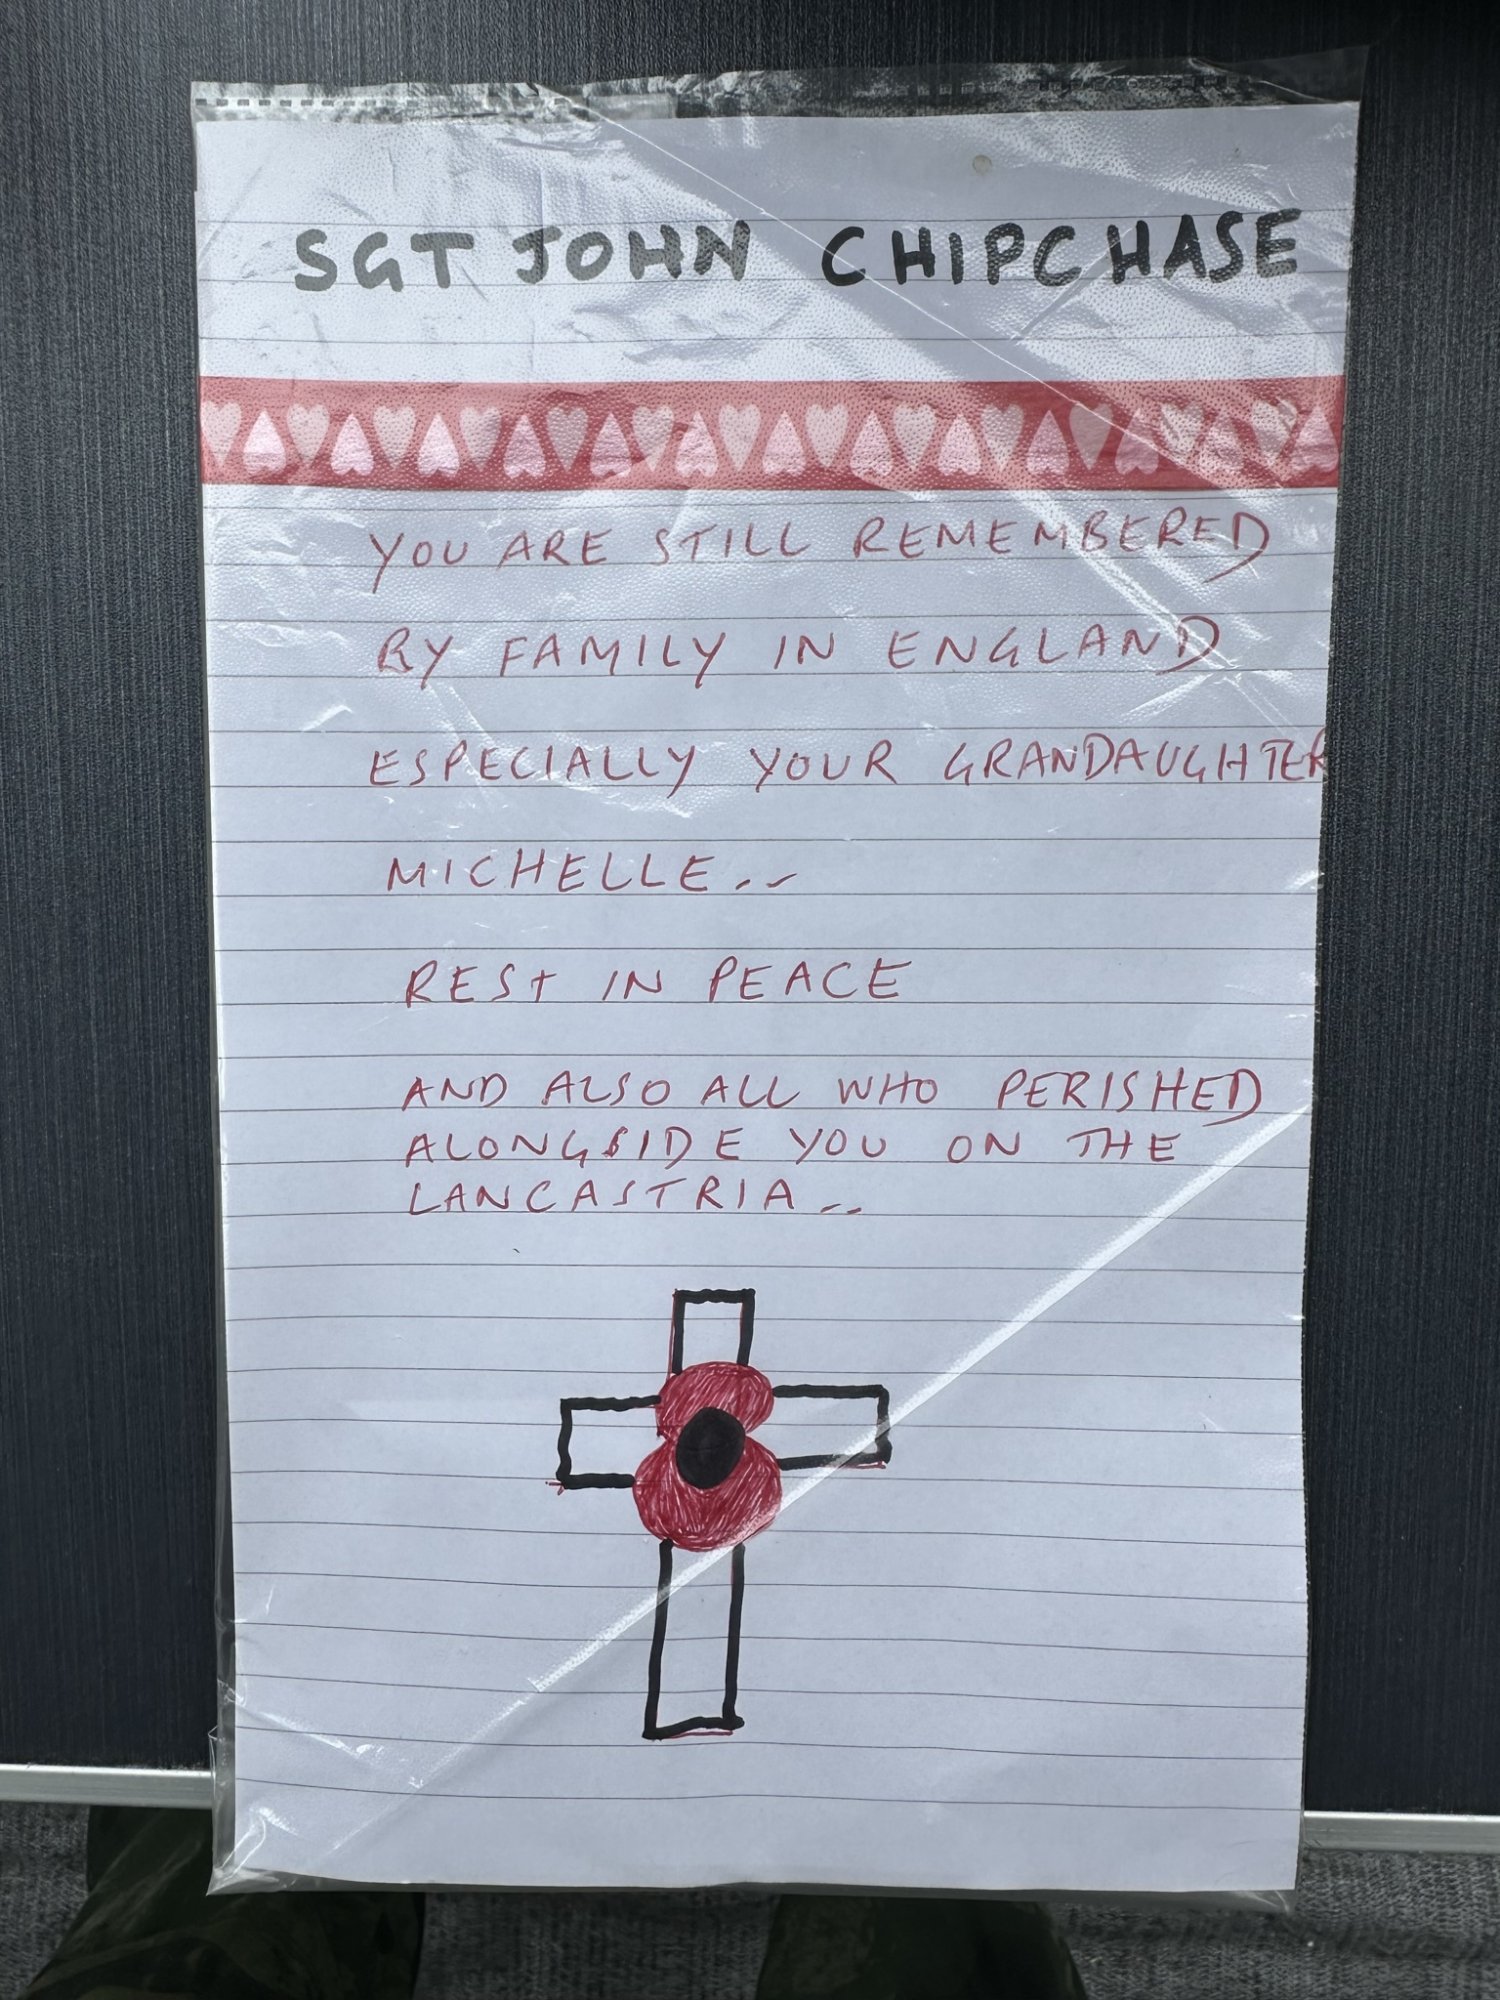 SGT JOHN CHIPCHASE
YOU ARE STILL REMEMBERED
BY FAMILY IN ENGLAND
ESPECIALLY YOUR GRANDAUGHTER
MICHELLE..
REST IN PEACE
AND ALSO ALL WHO PERISHED
ALONGSIDE YOU ON THE
LANCASTRIA..